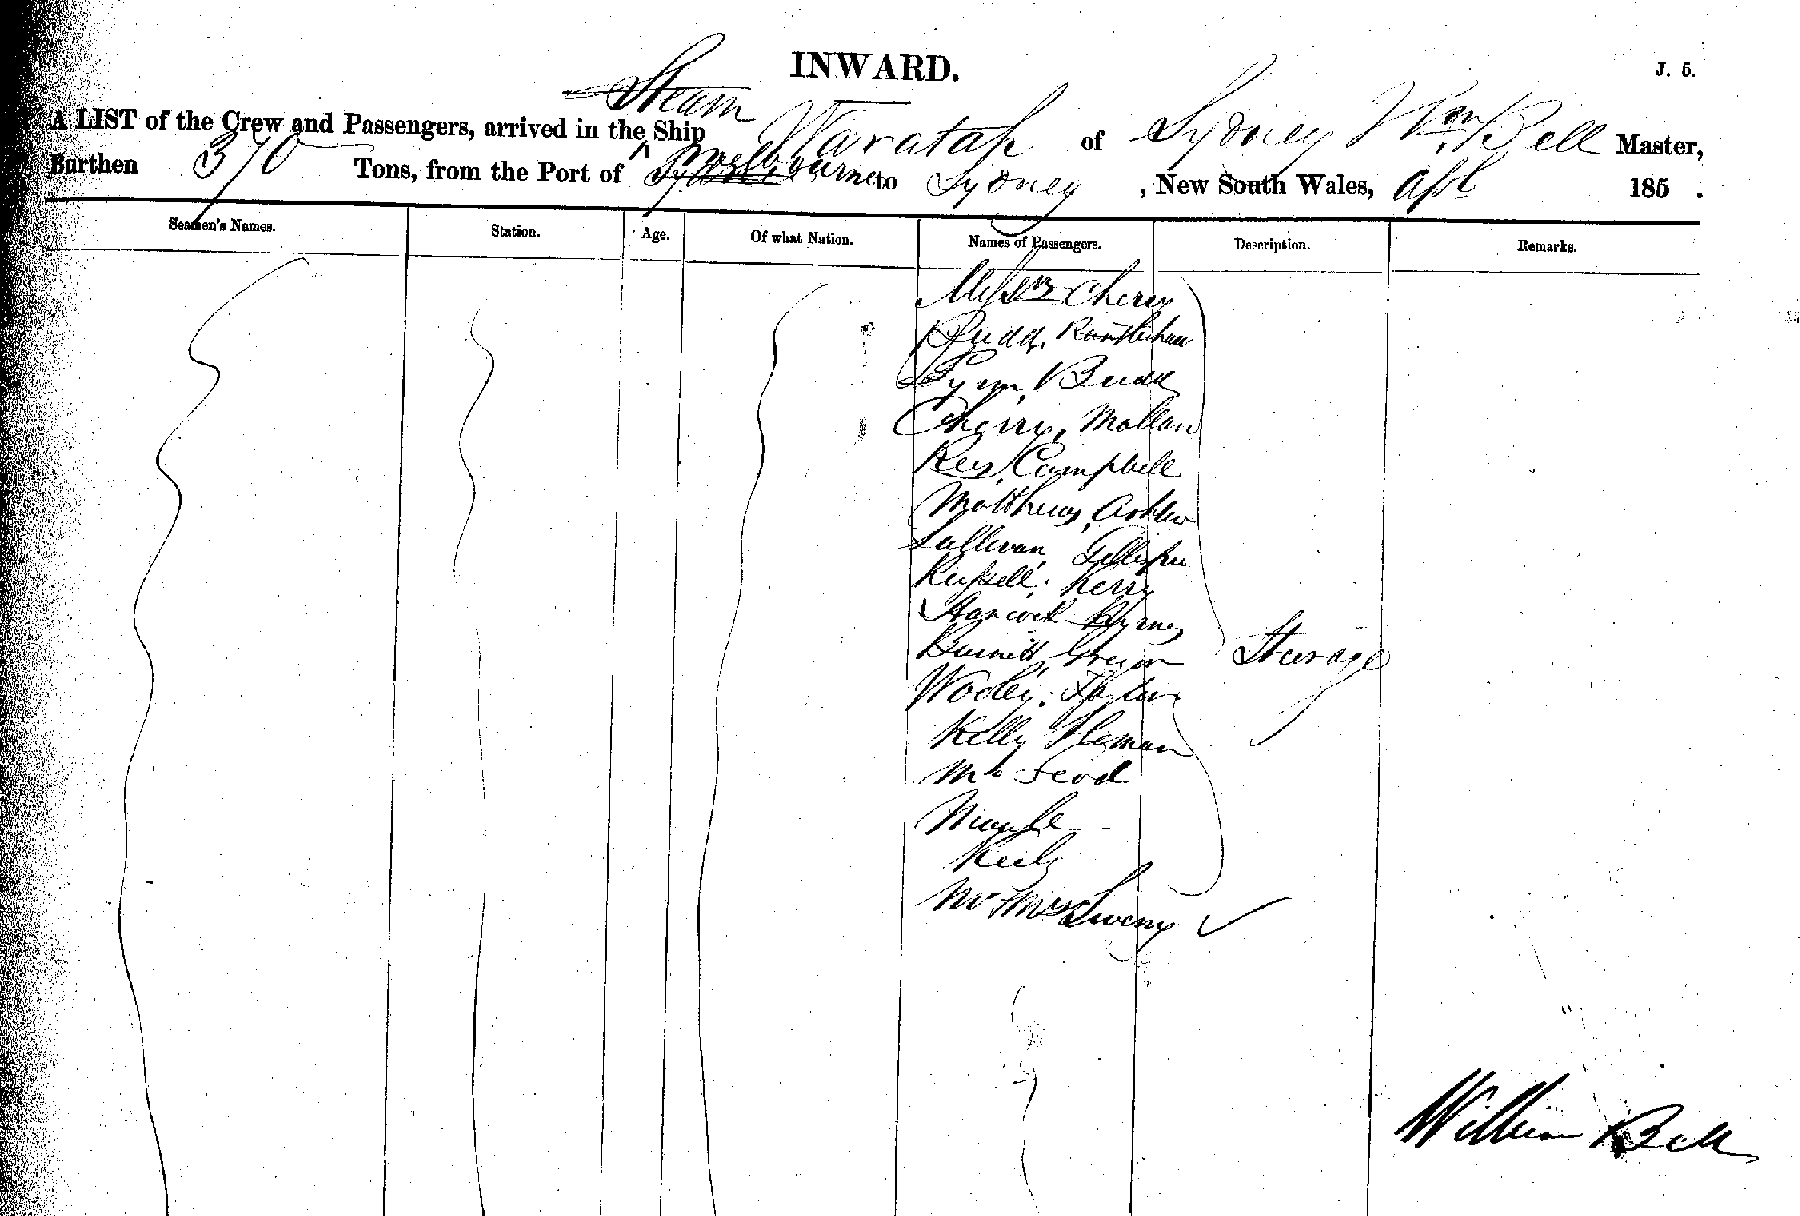 INWARD.
J. 5.
Steam
A LIST of the Crew and Passengers, arrived in the Ship Waratah of Sydney Wm Bell Master,
Burthen 370 Tons, from the Port of Melbourne to Sydney, New South Wales, Apl 185 .
Seamen's Names. Station. Age. Of what Nation. Names of Passengers. Description. Remarks.
Messrs Cherry
Budd
Lynn, Budd
Cherry, Mollan
Campbell
Matthews,
Sullivan, Gillespie
Russell, Kerry
Hancock Byrnes
Burnett, Gregor
Steerage
Wooley, Taylor
Kelly
McLeod
Kiely
Mr & Mrs Sweeny
William Bell